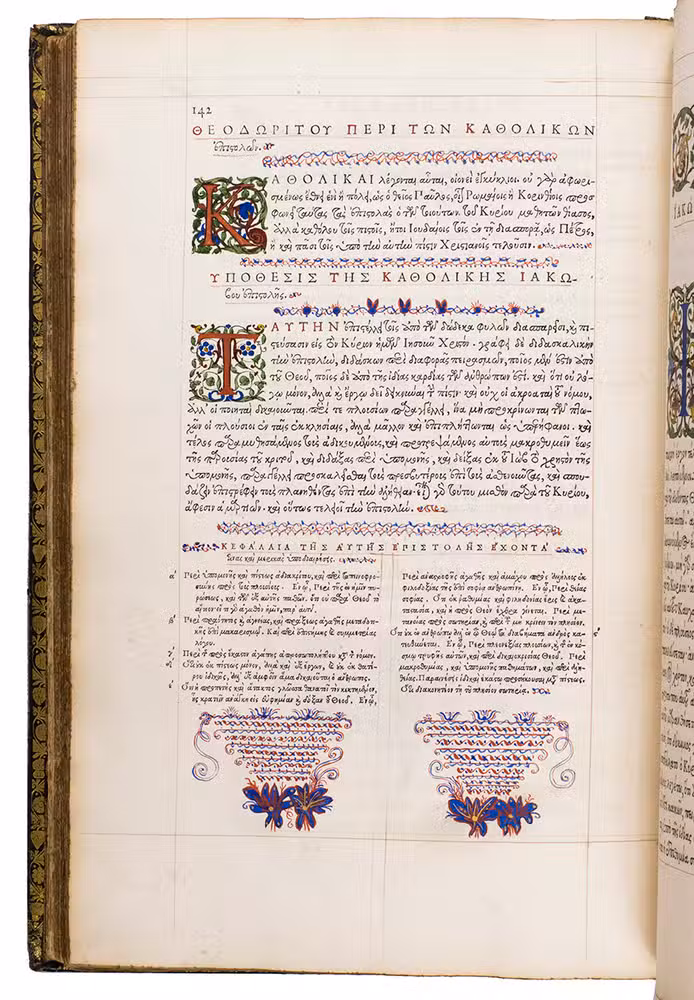 142
ΘΕΟΔΩΡΙΤΟΥ ΠΕΡΙ ΤΩΝ ΚΑΘΟΛΙΚΩΝ
ἐπιστολῶν.
ΚΑΘΟΛΙΚΑΙ λέγονται αὗται, οἱονεὶ ἐγκύκλιοι. οὐ γὰρ ἀφωρι-
σμένως ἔθνει ἑνὶ ἢ πόλει, ὡς ὁ θεῖος Παῦλος, Ῥωμαίοις ἢ Κορινθίοις προσ-
φωνεῖ ταύτας τὰς ἐπιστολὰς ὁ τῶν τοιούτων τοῦ Κυρίου μαθητῶν θίασος,
ἀλλὰ καθόλου τοῖς πιστοῖς, ἤτοι Ἰουδαίοις τοῖς ἐν τῇ διασπορᾷ, ὡς Πέτρος,
ἢ καὶ πᾶσι τοῖς ὑπὸ τὴν αὐτὴν πίστιν Χριστιανοῖς τελοῦσιν.
ΥΠΟΘΕΣΙΣ ΤΗΣ ΚΑΘΟΛΙΚΗΣ ΙΑΚΩ-
βου ἐπιστολῆς.
ΤΑΥΤΗΝ ἐπιστέλλει τοῖς ἀπὸ τῶν δώδεκα φυλῶν διασπαρεῖσι, καὶ πι-
στεύσασιν εἰς τὸν Κύριον ἡμῶν Ἰησοῦν Χριστόν. γράφει δὲ διδασκαλικὴν
τὴν ἐπιστολὴν, διδάσκων περὶ διαφορᾶς πειρασμῶν, ποῖος μὲν ἐστιν ἀπὸ
τοῦ Θεοῦ, ποῖος δὲ ἀπὸ τῆς ἰδίας καρδίας τῶν ἀνθρώπων ἐστί. καὶ ὅτι οὐ λό-
γῳ μόνον, ἀλλὰ καὶ ἔργῳ δεῖ δεικνύναι τὴν πίστιν· καὶ οὐχ οἱ ἀκροαταὶ τοῦ νόμου,
ἀλλ' οἱ ποιηταὶ δικαιοῦνται. περί τε πλουσίων παραγγέλλει, ἵνα μὴ προκρίνωνται τῶν πτω-
χῶν οἱ πλούσιοι ἐν ταῖς ἐκκλησίαις, ἀλλὰ μᾶλλον καὶ ἐπιπλήττωνται ὡς ὑπερήφανοι. καὶ
τέλος παραμυθησάμενος τοὺς ἀδικουμένους, καὶ προτρεψάμενος αὐτοὺς μακροθυμεῖν ἕως
τῆς παρουσίας τοῦ κριτοῦ, καὶ διδάξας περὶ ὑπομονῆς, καὶ δείξας ἐκ τοῦ Ἰὼβ τὸ χρήσιμον τῆς
ὑπομονῆς, παραγγέλλει προσκαλεῖσθαι τοὺς πρεσβυτέρους ἐπὶ τοὺς ἀσθενοῦντας, καὶ σπου-
δάζειν ἐπιστρέφειν τοὺς πλανηθέντας ἐπὶ τὴν ἀλήθειαν· εἶναι γὰρ τούτου μισθὸν παρὰ τοῦ Κυρίου,
ἄφεσιν ἁμαρτιῶν. καὶ οὕτως τελειοῖ τὴν ἐπιστολήν.
ΚΕΦΑΛΑΙΑ ΤΗΣ ΑΥΤΗΣ ΕΠΙΣΤΟΛΗΣ ΕΧΟΝΤΑ
τινας καὶ μερικὰς ὑποδιαιρέσεις.
α΄ Περὶ ὑπομονῆς καὶ πίστεως ἀδιακρίτου, καὶ περὶ ταπεινοφρο-
σύνης πρὸς τοὺς πλουσίους. Ἐν ᾧ, Περὶ τῆς ἐν ἡμῖν πυ-
ρώσεως, καὶ τῶν ἐξ αὐτῆς παθῶν. ὅτι οὐ παρὰ Θεοῦ τὸ
αἴτιον· εἴ τι γὰρ ἀγαθὸν ἡμῖν, παρ' αὐτοῦ.
β΄ Περὶ πραΰτητος καὶ ἁγνείας, καὶ πράξεως ἀγαθῆς μεταδοτι-
κῆς ἐπὶ μακαρισμῷ. Καὶ περὶ ἐπιστήμης καὶ συμμετρίας
λόγου.
γ΄ Περὶ τῆς πρὸς ἕκαστον ἀγάπης ἀπροσωπολήπτου κατὰ τὸν νόμον.
δ΄ Ὅτι οὐκ ἐκ πίστεως μόνον, ἀλλὰ καὶ ἐξ ἔργων, καὶ οὐκ ἐκ θατέ-
ρου ἰδικῶς, ἀλλ' ἐξ ἀμφοῖν ἅμα δικαιοῦται ὁ ἄνθρωπος.
ε΄ Ὅτι ἡ προπετὴς καὶ ἄτακτος γλῶσσα θανατοῖ τὸν κεκτημένον,
ἧς κρατεῖν ἀνάγκη εἰς εὐφημίαν καὶ δόξαν τοῦ Θεοῦ. Ἐν ᾧ,
Περὶ ἀναστροφῆς ἀγαθῆς καὶ ἀμάχου πρὸς ἀλλήλους ἐκ
φιλοδοξίας τῆς ἐπὶ σοφίᾳ ἀνθρωπίνῃ. Ἐν ᾧ, Περὶ θείας
σοφίας. Ὅτι ἐκ ῥᾳθυμίας καὶ φιληδονίας ἔρις καὶ ἀκα-
ταστασία, καὶ ἡ πρὸς Θεὸν ἔχθρα γίνεται. Περὶ με-
τανοίας πρὸς σωτηρίαν, καὶ περὶ τοῦ μὴ κρίνειν τὸν πλησίον.
Ὅτι οὐκ ἐν ἀνθρώπῳ ἀλλ' ἐν Θεῷ τὰ διαβήματα ἀνδρὸς κα-
τευθύνεται. Ἐν ᾧ, Περὶ πλεονεξίας πλουσίων, καὶ τῆς ἐν κό-
σμῳ τρυφῆς αὐτῶν, καὶ περὶ δικαιοκρισίας Θεοῦ. Περὶ
μακροθυμίας, καὶ ὑπομονῆς παθημάτων, καὶ περὶ ἀλη-
θείας. Παραινέσεις ἰδικαὶ ἑκάστῳ προσήκουσαι μετὰ πίστεως.
Ὅτι διακονητέον τῇ τοῦ πλησίον σωτηρίᾳ.
ΙΑΚΩ